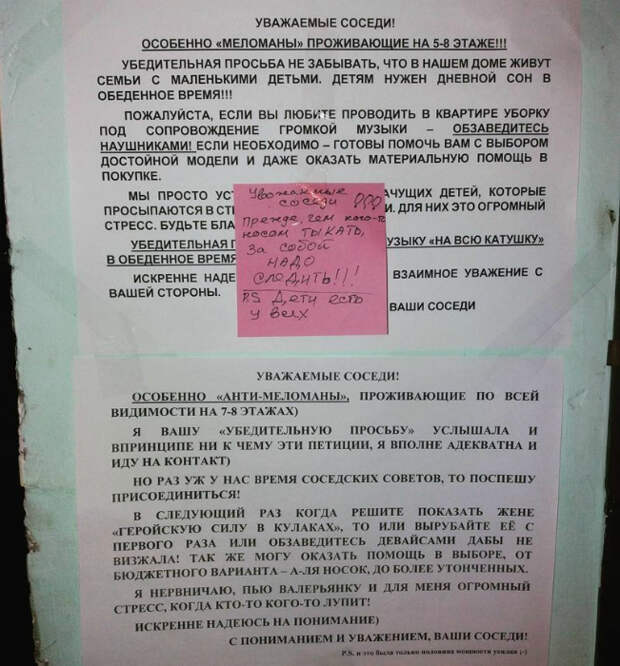 УВАЖАЕМЫЕ СОСЕДИ!
ОСОБЕННО «МЕЛОМАНЫ» ПРОЖИВАЮЩИЕ НА 5-8 ЭТАЖЕ!!!
УБЕДИТЕЛЬНАЯ ПРОСЬБА НЕ ЗАБЫВАТЬ, ЧТО В НАШЕМ ДОМЕ ЖИВУТ
СЕМЬИ С МАЛЕНЬКИМИ ДЕТЬМИ. ДЕТЯМ НУЖЕН ДНЕВНОЙ СОН В
ОБЕДЕННОЕ ВРЕМЯ!!!
ПОЖАЛУЙСТА, ЕСЛИ ВЫ ЛЮБИТЕ ПРОВОДИТЬ В КВАРТИРЕ УБОРКУ
ПОД СОПРОВОЖДЕНИЕ ГРОМКОЙ МУЗЫКИ – ОБЗАВЕДИТЕСЬ
НАУШНИКАМИ! ЕСЛИ НЕОБХОДИМО – ГОТОВЫ ПОМОЧЬ ВАМ С ВЫБОРОМ
ДОСТОЙНОЙ МОДЕЛИ И ДАЖЕ ОКАЗАТЬ МАТЕРИАЛЬНУЮ ПОМОЩЬ В
ПОКУПКЕ.
МЫ ПРОСТО УСТ АЧУЩИХ ДЕТЕЙ, КОТОРЫЕ
ПРОСЫПАЮТСЯ В СТР И. ДЛЯ НИХ ЭТО ОГРОМНЫЙ
СТРЕСС. БУДЬТЕ БЛА
УБЕДИТЕЛЬНАЯ П УЗЫКУ «НА ВСЮ КАТУШКУ»
В ОБЕДЕННОЕ ВРЕМЯ
ИСКРЕННЕ НАДЕЕ ВЗАИМНОЕ УВАЖЕНИЕ С
ВАШЕЙ СТОРОНЫ.
ВАШИ СОСЕДИ
Уважаемые
соседи
Прежде, чем кого-то
носом тыкать,
за собой
надо
следить!!!
P.S Дети есть
у всех
УВАЖАЕМЫЕ СОСЕДИ!
ОСОБЕННО «АНТИ-МЕЛОМАНЫ», ПРОЖИВАЮЩИЕ ПО ВСЕЙ
ВИДИМОСТИ НА 7-8 ЭТАЖАХ)
Я ВАШУ «УБЕДИТЕЛЬНУЮ ПРОСЬБУ» УСЛЫШАЛА И
ВПРИНЦИПЕ НИ К ЧЕМУ ЭТИ ПЕТИЦИИ, Я ВПОЛНЕ АДЕКВАТНА И
ИДУ НА КОНТАКТ)
НО РАЗ УЖ У НАС ВРЕМЯ СОСЕДСКИХ СОВЕТОВ, ТО ПОСПЕШУ
ПРИСОЕДИНИТЬСЯ!
В СЛЕДУЮЩИЙ РАЗ КОГДА РЕШИТЕ ПОКАЗАТЬ ЖЕНЕ
«ГЕРОЙСКУЮ СИЛУ В КУЛАКАХ», ТО ИЛИ ВЫРУБАЙТЕ ЕЁ С
ПЕРВОГО РАЗА ИЛИ ОБЗАВЕДИТЕСЬ ДЕВАЙСАМИ ДАБЫ НЕ
ВИЗЖАЛА! ТАК ЖЕ МОГУ ОКАЗАТЬ ПОМОЩЬ В ВЫБОРЕ, ОТ
БЮДЖЕТНОГО ВАРИАНТА – А-ЛЯ НОСОК, ДО БОЛЕЕ УТОНЧЕННЫХ.
Я НЕРВНИЧАЮ, ПЬЮ ВАЛЕРЬЯНКУ И ДЛЯ МЕНЯ ОГРОМНЫЙ
СТРЕСС, КОГДА КТО-ТО КОГО-ТО ЛУПИТ!
ИСКРЕННЕ НАДЕЮСЬ НА ПОНИМАНИЕ)
С ПОНИМАНИЕМ И УВАЖЕНИЕМ, ВАШИ СОСЕДИ!
P.S. и это была только половина мощности усилка ;-)